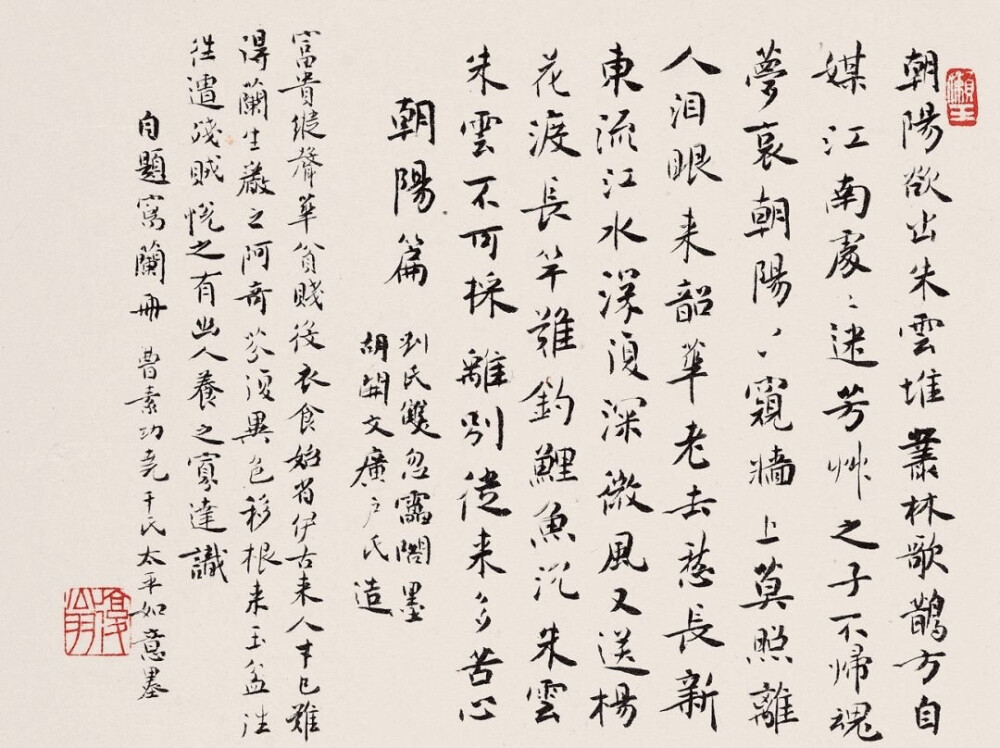 朝陽欲出朱雲堆叢林歌鵲方自
媒江南處〻迷芳艸之子不帰魂
夢哀朝陽〻窺牆上莫照離
人泪眼来韶華老去愁長新
東流江水深復深微風又送楊
花渡長竿難釣鯉魚沉朱雲
朱雲不可採離別從来多苦心
朝陽篇
刘氏雙忽靁閣墨
胡開文廣户氏造
富貴縱聲華貧賤役衣食始省伊古来人才已難
得蘭生巖之阿奇芬復異色移根来玉盆往
往遭殘賊悦之有幽人養之寡達識
自題寫蘭冊 曹素功堯千氏太平如意墨
復翁